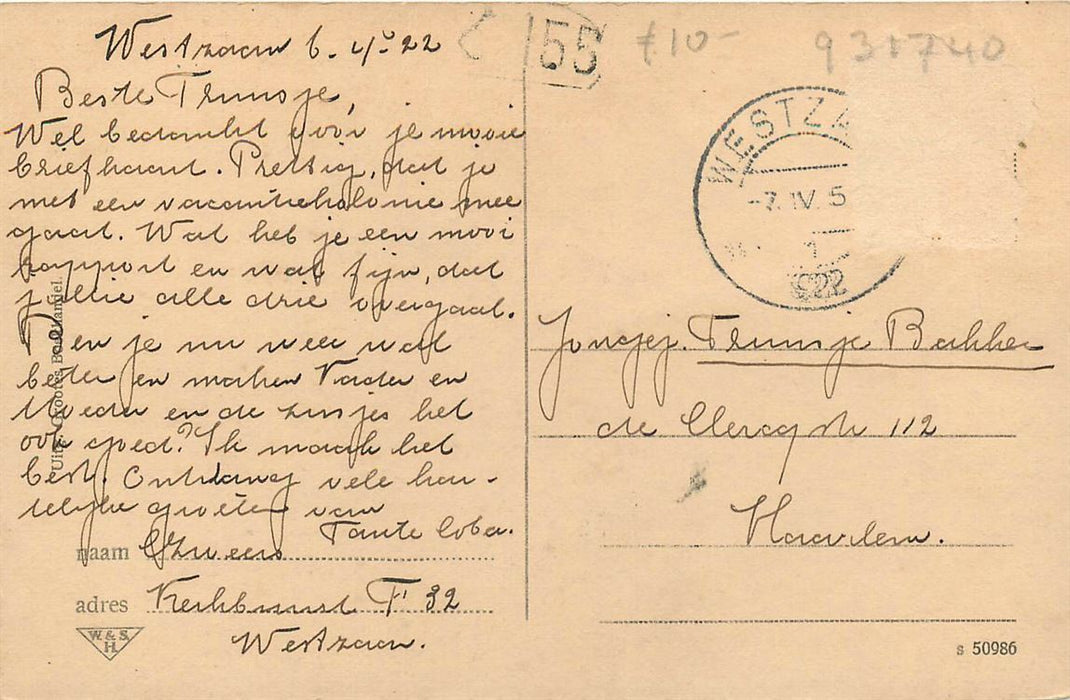 Westzaan 6-4-'22
Beste Truusje,
Wel bedankt voor je mooie
briefkaart. Prettig, dat je
met een vacantiekolonie mee
gaat. Wat heb je een mooi
rapport en wat fijn, dat
jullie alle drie overgaat.
Ben je nu weer wat
beter en maken Vader en
Moeder en de zusjes het
ook goed? Ik maak het
best. Ontvang vele har-
telijke groeten van
Tante Coba.
naam
adres Kerkbuurt F 32
Westzaan.
W. & S.
H.
55
f 10-
931740
WESTZA
-7.IV. 5
1922
Jongej. Truusje Bakker
de Clercqstr 112
Haarlem.
s 50986